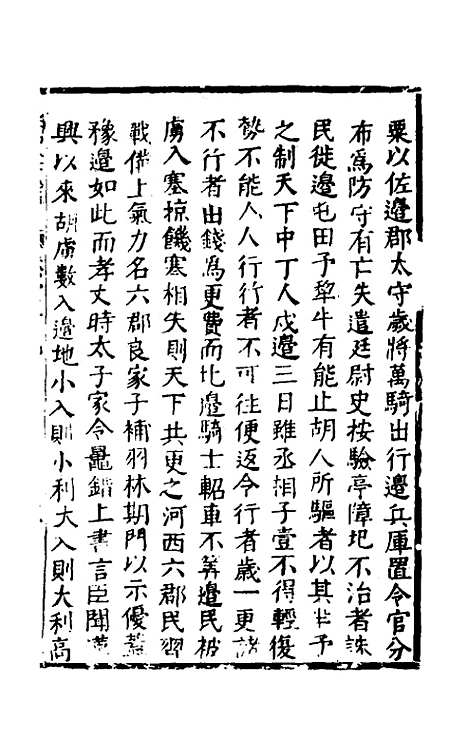 粟以佐邊郡太守歲將萬騎出行邊兵庫置令官分
布爲防守有亡失遣廷尉史按驗亭障圯不治者誅
民徙邊屯田予犂牛有能止胡人所驅者以其半予
之制天下中丁人戍邊三日雖丞相子壹不得輕復
勢不能人人行行者不可往便返令行者歲一更諸
不行者出錢爲更費而比邊騎士軺車不筭邊民被
虜入塞掠饑塞相失則天下共更之河西六郡民習
戰備上氣力名六郡良家子補羽林期門以示優蓋
豫邊如此而孝文時太子家令鼂錯上書言臣聞漢
興以來胡虜數入邊地小入則小利大入則大利高